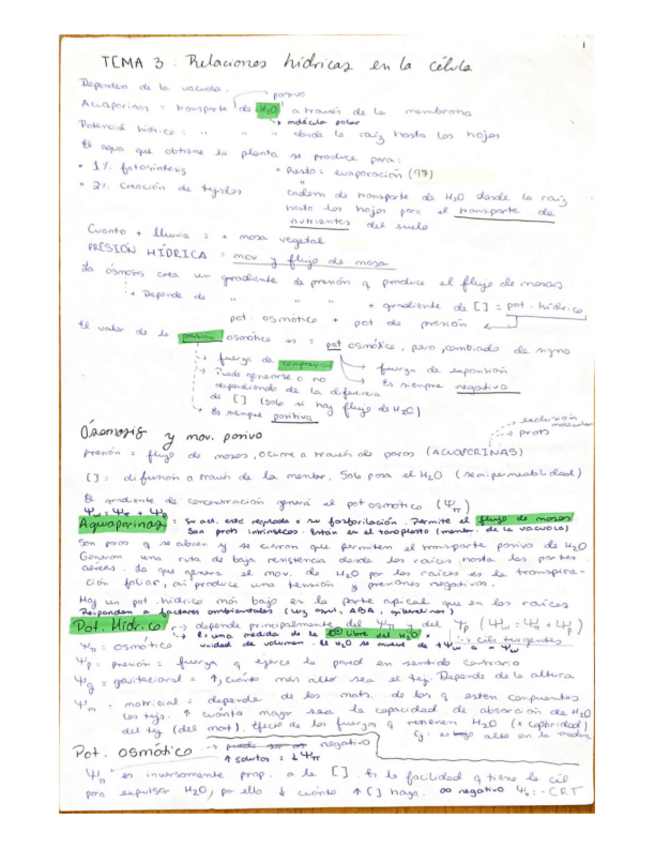 1
TEMA 3: Relaciones hídricas en la célula
Dependen de la vacuola.
pasivo
Acuaporinas = transporte de H2O a través de la membrana
→ molécula polar
Potencial hídrico: " " " desde la raíz hasta las hojas
El agua que obtiene la planta se produce para:
• 1% fotosíntesis • Resto = evaporación (97)
• 2% creación de tejidos "
cadena de transporte de H2O desde la raíz
hasta las hojas para el transporte de
nutrientes del suelo
Cuanta + lluvia = + masa vegetal
PRESIÓN HÍDRICA = mov y flujo de masa
La ósmosis crea un gradiente de presión q produce el flujo de masas
→ Depende de " " " + gradiente de [ ] = pot. hídrico
pot. osmótico + pot de presión
El valor de la presión osmótica es = pot osmótico, pero cambiado de signo
→ fuerza de compresión
→ fuerza de expansión
→ Puede generarse o no
dependiendo de la diferencia
de [ ] (solo si hay flujo de H2O)
→ Es siempre negativa
→ Es siempre positiva
→ exclusión molecular
→ prots
Ósmosis y mov. pasivo
presión = flujo de masas, ocurre a través de poros (ACUAPORINAS)
[ ] = difusión a través de la membr. Solo pasa el H2O (semipermeabilidad)
El gradiente de concentración genera el pot osmótico (Ψπ)
Ψw = Ψπ + Ψp
Aquaporinas = su act. está regulada x su fosforilación. Permite el flujo de masas.
Son prots intrínsecas. Están en el tonoplasto (membr. de la vacuola)
Son poros q se abren y se cierran que permiten el transporte pasivo de H2O
Generan una ruta de baja resistencia desde las raíces hasta las partes
aéreas. Lo que genera el mov. de H2O por las raíces es la transpira-
ción foliar, así produce una tensión y presiones negativas.
Hay un pot. hídrico más bajo en la parte apical que en las raíces
Responden a factores ambientales (luz azul, ABA, giberelinas)
Pot. Hídrico → depende principalmente del Ψπ y del Ψp (Ψw = Ψπ + Ψp)
→ Es una medida de la libre del H2O x
→ céls turgentes
unidad de volumen. El H2O se mueve de +Ψw a -Ψw
Ψπ = osmótico
Ψp = presión = fuerza q ejerce la pared en sentido contrario
Ψg = gravitacional = ↑, cuánto más alto sea el tej. Depende de la altura
Ψm = matricial = depende de los mats. de los q estén compuestos
los tejs. ↑ cuánto mayor sea la capacidad de absorción de H2O
del tej (del mat). Efecto de las fuerzas q retienen H2O (x capilaridad)
Ej: es alto en la madera
Pot. osmótico → negativo
↑ solutos = ↓ Ψπ
Ψπ es inversamente prop. a la [ ]. Es la facilidad q tiene la cél
para expulsar H2O, por ello ↓ cuánto ↑ [ ] haya. negativo Ψπ = -CRT